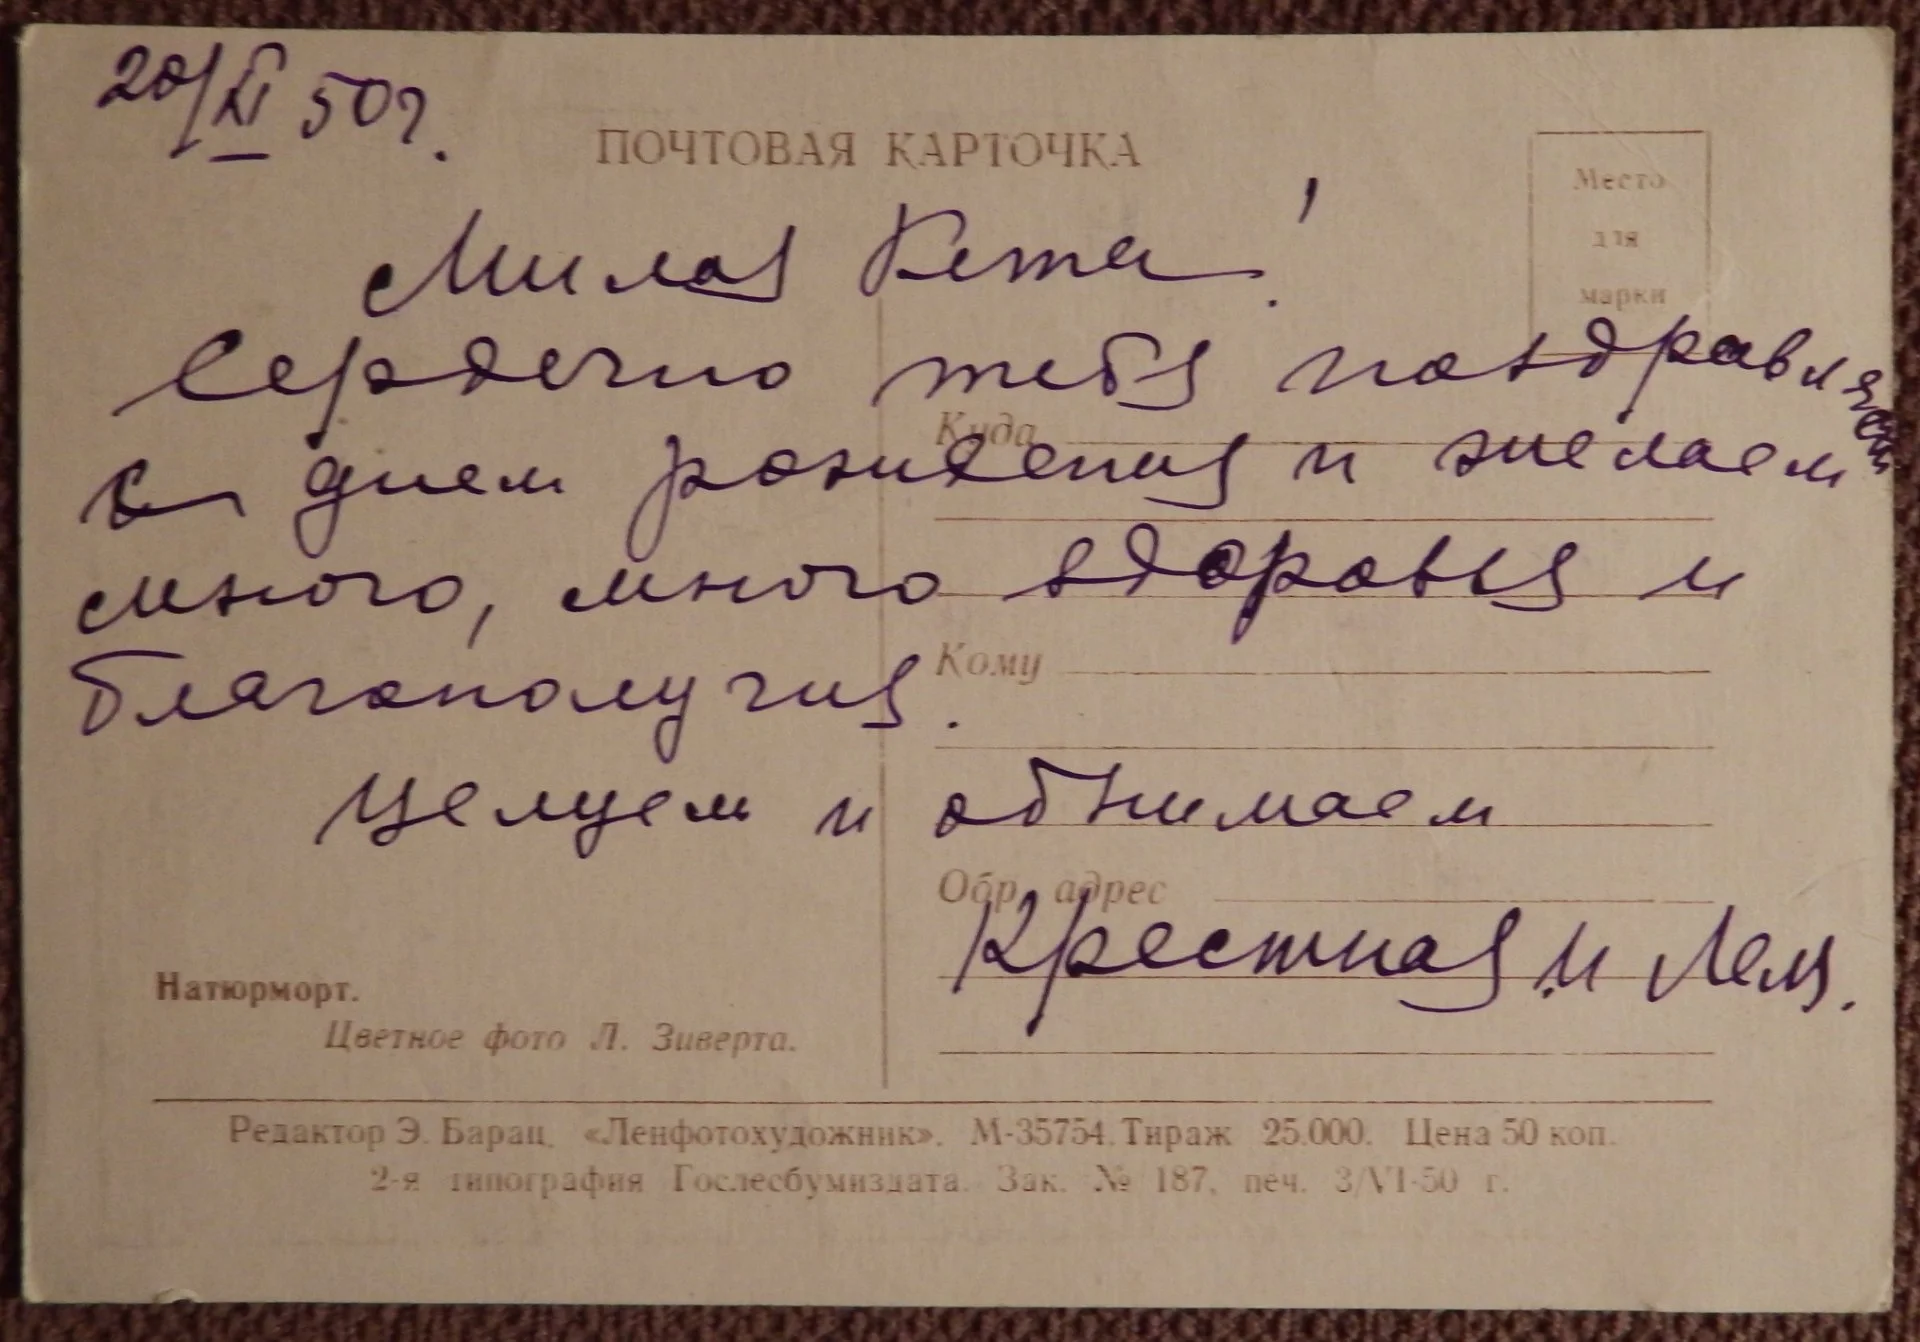 20/XI 50 г.
ПОЧТОВАЯ КАРТОЧКА
Место
для
марки
Милая Кета!
Сердечно тебя поздравляем
Куда
с днем рождения и желаем
много, много здоровья и
Кому
благополучия.
Целуем и обнимаем
Обр. адрес
Крестная и
Натюрморт.
Цветное фото Л. Зиверта.
Редактор Э. Барац. «Ленфотохудожник». М-35754. Тираж 25.000. Цена 50 коп.
2-я типография Гослесбумиздата. Зак. № 187, печ. 3/VI-50 г.